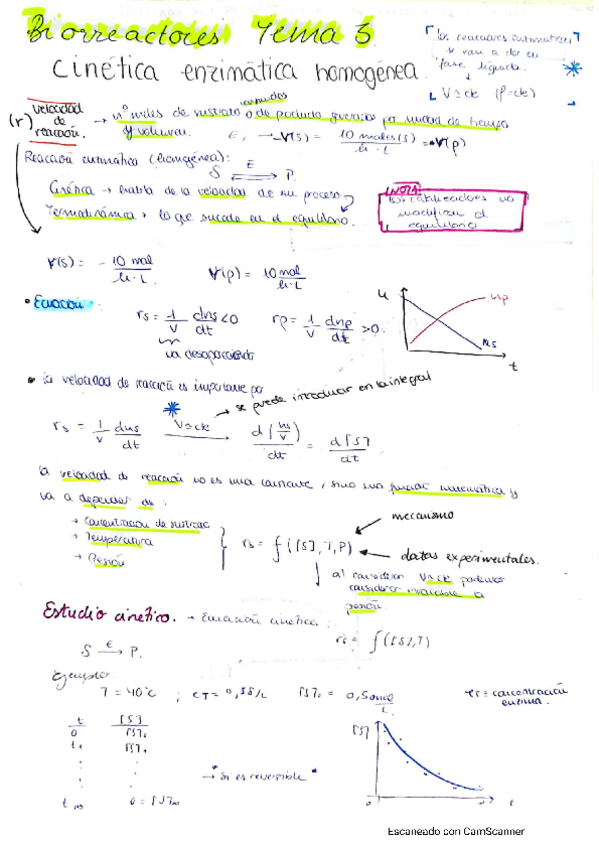 Biorreactores Tema 3
cinética enzimática homogénea.
las reacciones enzimáticas
se van a dar en
fase líquida
↓
V≃cte (ρ=cte)
(r) velocidad de reacción. → nº moles de sustrato consumidos o de producto generados por unidad de tiempo
y volumen. E, → -r(s) = 10 moles(s) / h·L = r(p)
Reacción enzimática (homogénea): S ⇌ P. E
Cinética → habla de la velocidad de un proceso
Termodinámica → lo que sucede en el equilibrio.
NOTA
los catalizadores no
modifican el
equilibrio
r(s) = - 10 mol / h·L r(p) = 10 mol / h·L
• Ecuación:
rs = 1/V dns/dt <0 rp = 1/V dnp/dt >0.
va desapareciendo
n np ns t
• la velocidad de reacción es importante por
→ se puede introducir en la integral
rs = 1/V dns/dt V≃cte → d(ns/V)/dt = d[S]/dt
la velocidad de reacción no es una constante, sino una función matemática y
va a depender de:
→ Concentración de sustrato
→ Temperatura
→ Presión
rs = f([S],T,P)
mecanismo
datos experimentales.
al considerar V≃cte podemos
considerar invariable la
presión.
Estudio cinético. → Ecuación cinética: rs = f([S],T)
S → P. E
Ejemplo:
T = 40°C ; eT = 0,5g/L [S]₀ = 0,5 mol/L
eT = concentración
enzima.
t [S]
0 [S]₀
t₁ [S]₁
: :
t∞ 0 = [S]∞
→ "Si es reversible"
[S] 0 t
Escaneado con CamScanner